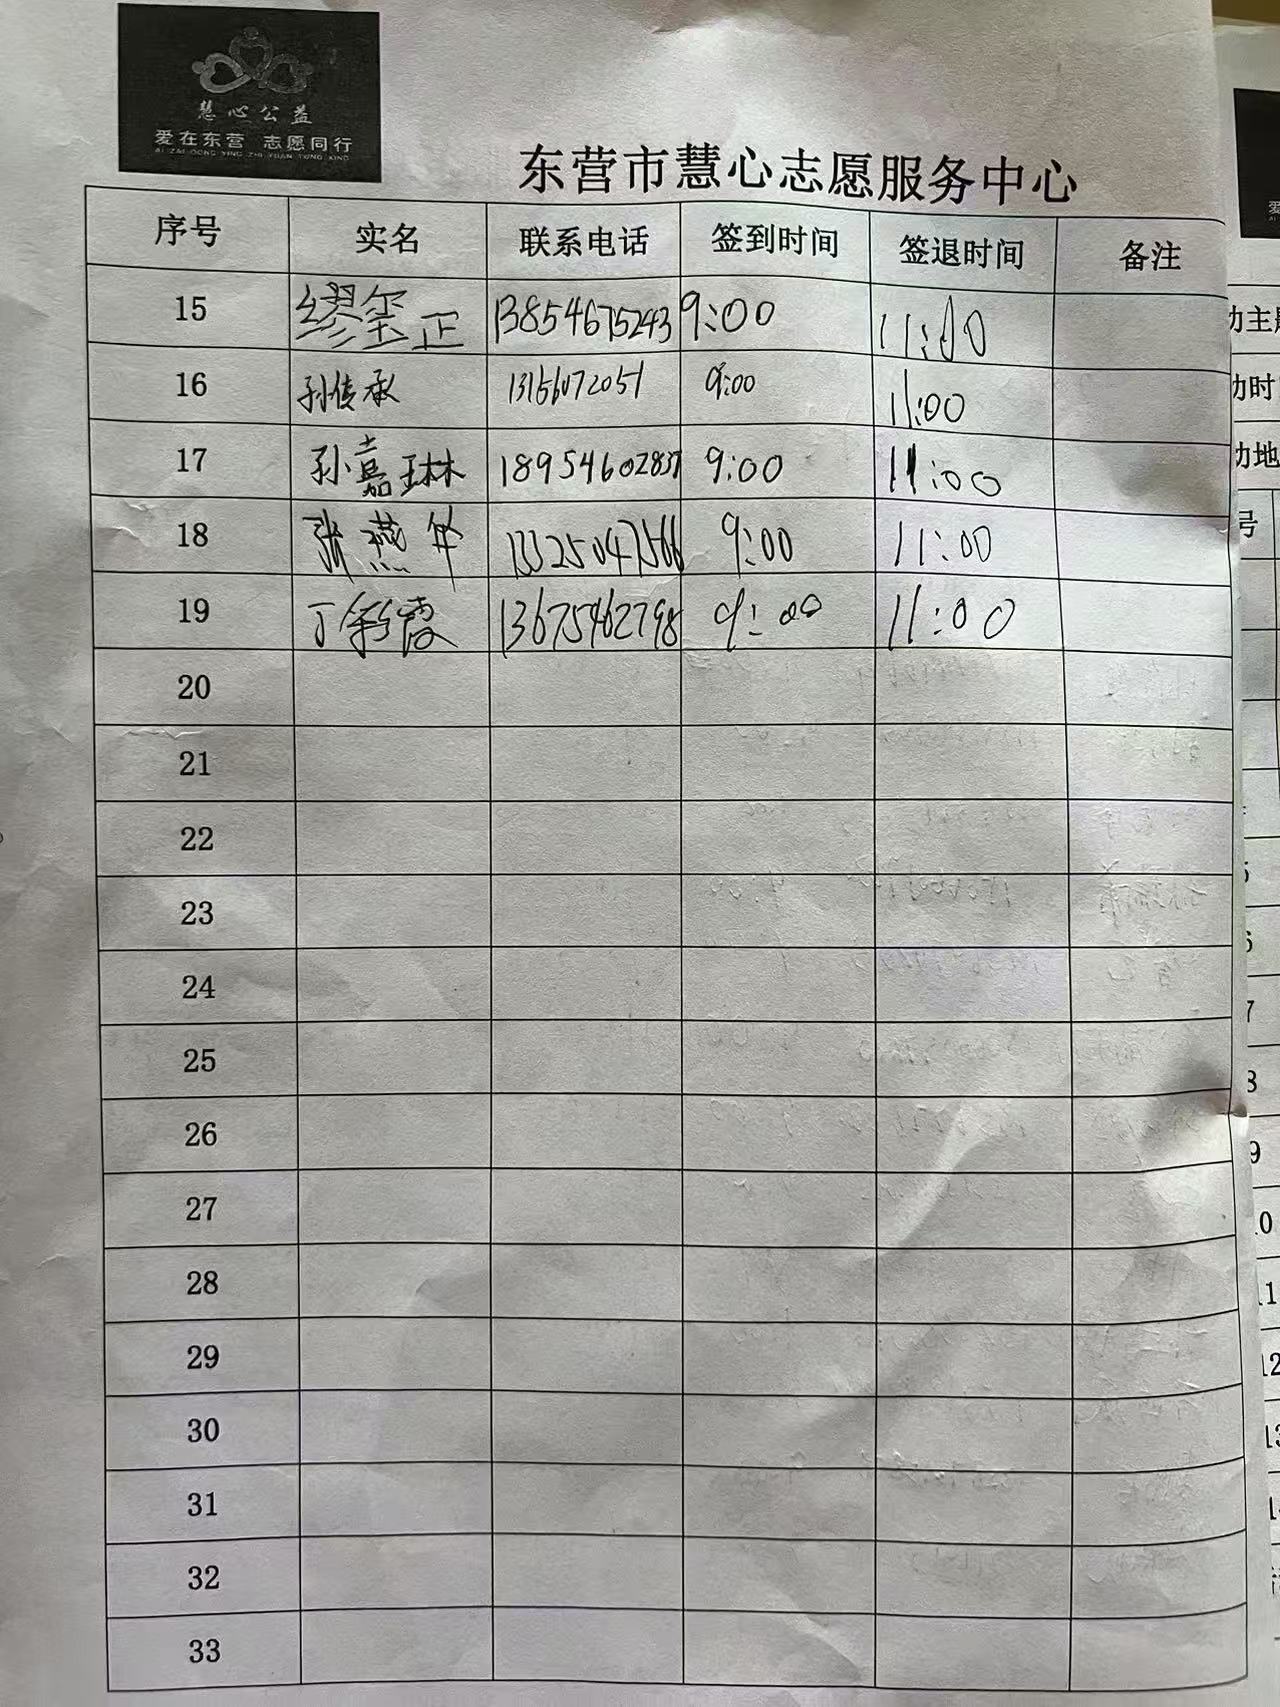 慧心公益
爱在东营 志愿同行
AI ZAI DONG YING ZHI YUAN TONG XING
东营市慧心志愿服务中心
序号 实名 联系电话 签到时间 签退时间 备注
15 缪玺正 13854675243 9:00 11:00
16 孙传承 13156072051 9:00 11:00
17 孙嘉琳 18954602837 9:00 11:00
18 张燕华 13325047566 9:00 11:00
19 丁彩霞 13675462798 9:00 11:00
20
21
22
23
24
25
26
27
28
29
30
31
32
33
动主题
动时
动地
号
5
6
7
8
9
10
11
12
13